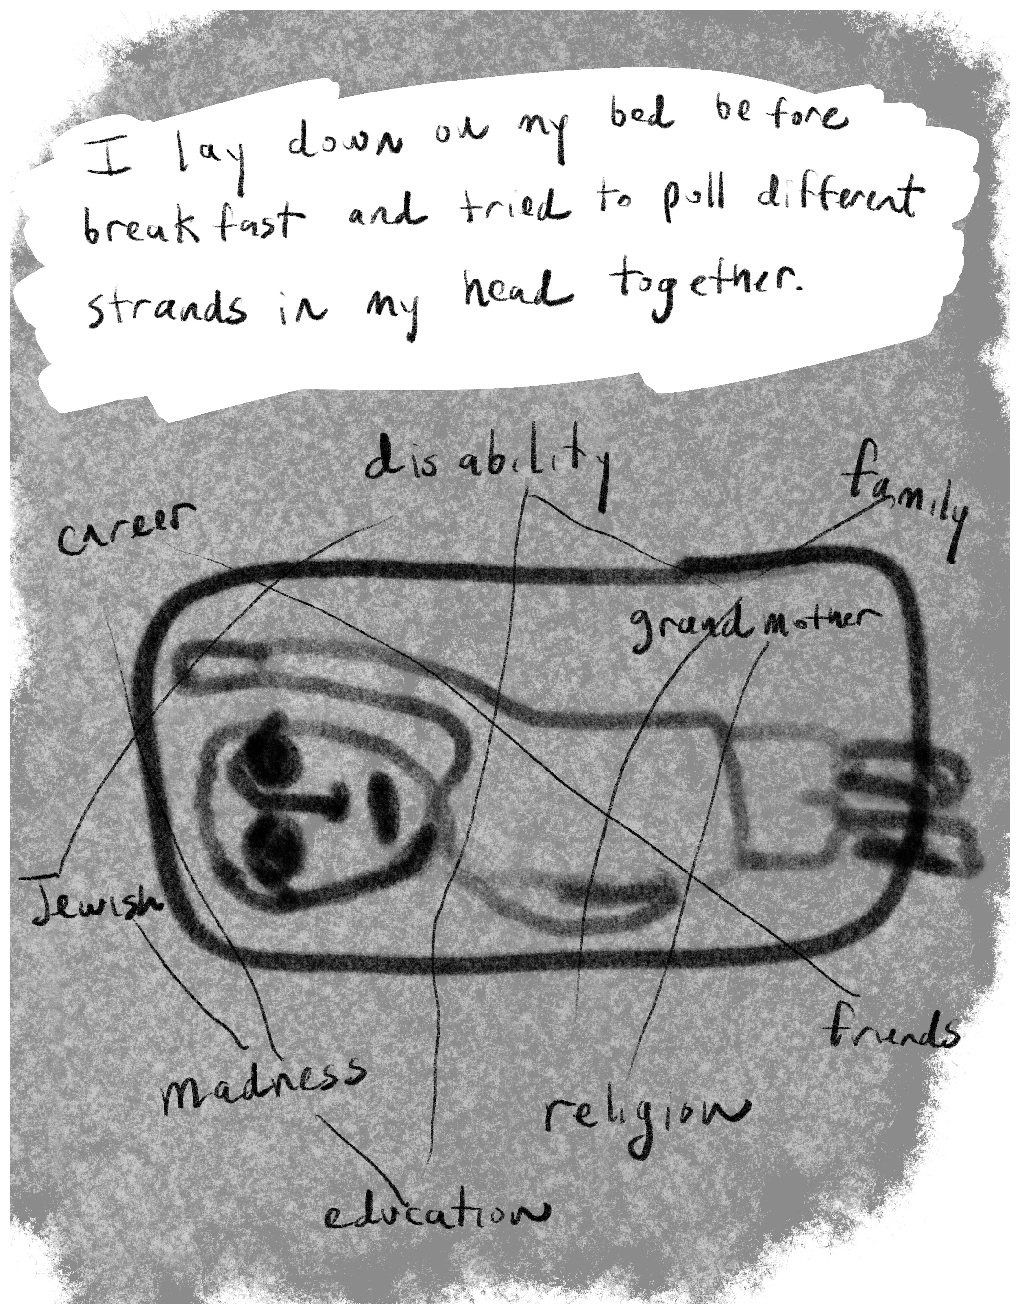 I lay down on my bed before
breakfast and tried to pull different
strands in my head together.
disability
family
career
grandmother
Jewish
friends
madness
religion
education